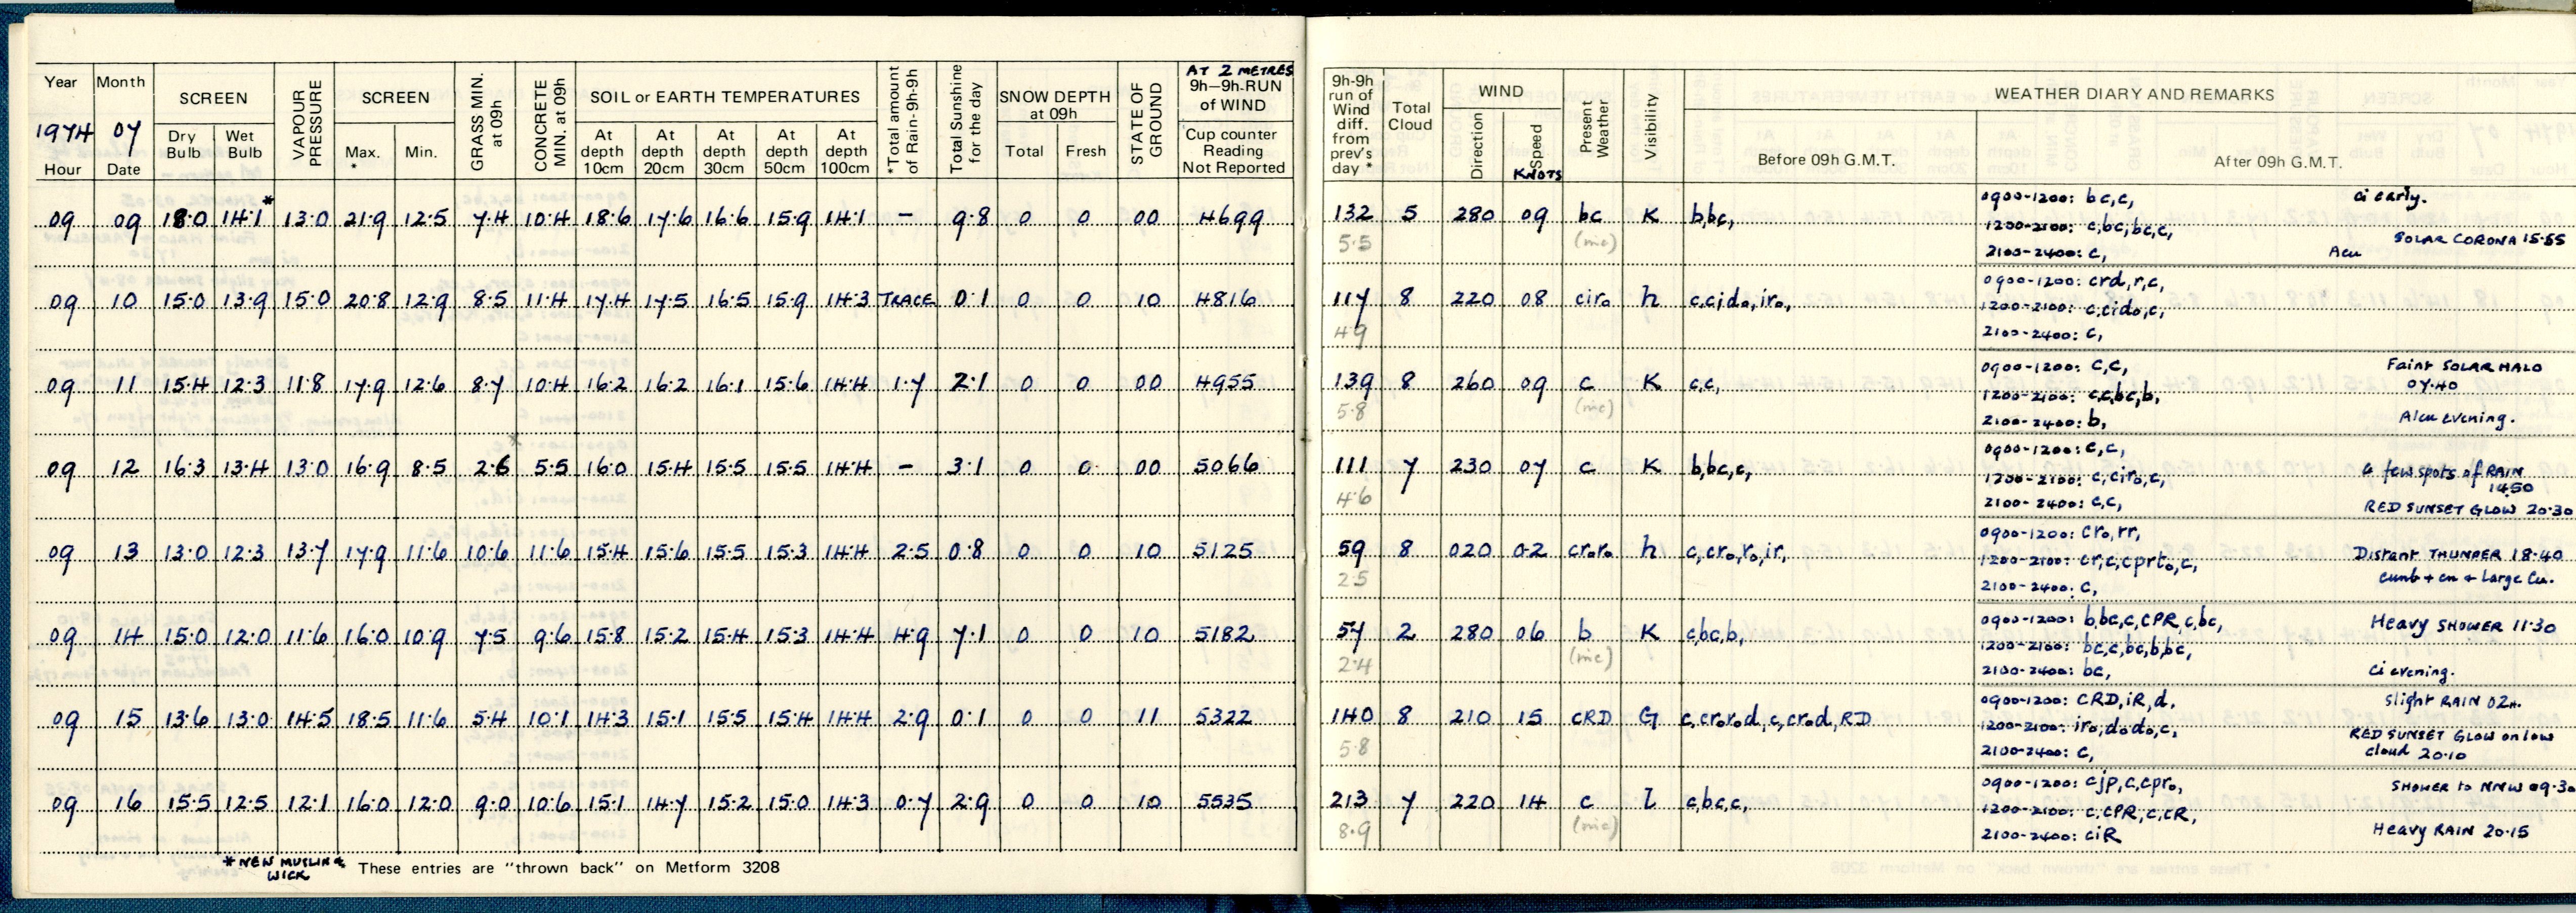 Year Month SCREEN VAPOUR PRESSURE SCREEN GRASS MIN. at 09h CONCRETE MIN. at 09h SOIL or EARTH TEMPERATURES *Total amount of Rain-9h-9h Total Sunshine for the day SNOW DEPTH at 09h STATE OF GROUND AT 2 METRES 9h-9h-RUN of WIND
1974 07 Dry Bulb Wet Bulb Max. * Min. At depth 10cm At depth 20cm At depth 30cm At depth 50cm At depth 100cm Total Fresh Cup counter Reading Not Reported
Hour Date
09 09 18.0 14.1* 13.0 21.9 12.5 7.4 10.4 18.6 17.6 16.6 15.9 14.1 - 9.8 0 0 00 4699
09 10 15.0 13.9 15.0 20.8 12.9 8.5 11.4 17.4 17.5 16.5 15.9 14.3 TRACE 0.1 0 0 10 4816
09 11 15.4 12.3 11.8 17.9 12.6 8.7 10.4 16.2 16.2 16.1 15.6 14.4 1.7 2.1 0 0 00 4955
09 12 16.3 13.4 13.0 16.9 8.5 2.6 5.5 16.0 15.4 15.5 15.5 14.4 - 3.1 0 0 00 5066
09 13 13.0 12.3 13.7 17.9 11.6 10.6 11.6 15.4 15.6 15.5 15.3 14.4 2.5 0.8 0 0 10 5125
09 14 15.0 12.0 11.6 16.0 10.9 7.5 9.6 15.8 15.2 15.4 15.3 14.4 4.9 7.1 0 0 10 5182
09 15 13.6 13.0 14.5 18.5 11.6 5.4 10.1 14.3 15.1 15.5 15.4 14.4 2.9 0.1 0 0 11 5322
09 16 15.5 12.5 12.1 16.0 12.0 9.0 10.6 15.1 14.7 15.2 15.0 14.3 0.7 2.9 0 0 10 5535
* NEW MUSLIN & WICK
These entries are "thrown back" on Metform 3208
9h-9h run of Wind diff. from prev's day * Total Cloud WIND Present Weather Visibility WEATHER DIARY AND REMARKS
Direction Speed KNOTS Before 09h G.M.T. After 09h G.M.T.
132 5 280 09 bc K b,bc,
5.5 (mc)
0900-1200: bc,c, Ci early.
1200-2100: c,bc,bc,c, SOLAR CORONA 15.55
2100-2400: c, Acu
117 8 220 08 ciro h c,cido,iro,
4.9
0900-1200: crd,r,c,
1200-2100: c,cido,c,
2100-2400: c,
139 8 260 09 c K c,c,
5.8 (mc)
0900-1200: c,c, Faint SOLAR HALO 07.40
1200-2100: c,c,bc,b,
2100-2400: b, Alcu evening.
111 7 230 07 c K b,bc,c,
4.6
0900-1200: c,c,
1200-2100: c,ciro,c, a few spots of RAIN 1450
2100-2400: c,c, RED SUNSET GLOW 20.30
59 8 020 02 croro h c,cro,ro,ir,
2.5
0900-1200: cro,rr,
1200-2100: cr,c,cprto,c, Distant THUNDER 18.40
2100-2400: c, cumb + cn + Large Cu.
57 2 280 06 b K c,bc,b,
2.4 (mc)
0900-1200: b,bc,c,cPR,c,bc, Heavy SHOWER 11.30
1200-2100: bc,c,bc,b,bc,
2100-2400: bc, Ci evening.
140 8 210 15 CRD G c,croro,d,c,cro,d,RD
5.8
0900-1200: CRD,iR,d, Slight RAIN 02H.
1200-2100: iro,dodo,c, RED SUNSET GLOW on low
2100-2400: c, cloud 20.10
213 7 220 14 c l c,bc,c,
8.9 (mc)
0900-1200: cjp,c,cpro, SHOWER to NNW 09.30
1200-2100: c,cPR,c,cR,
2100-2400: ciR Heavy RAIN 20.15